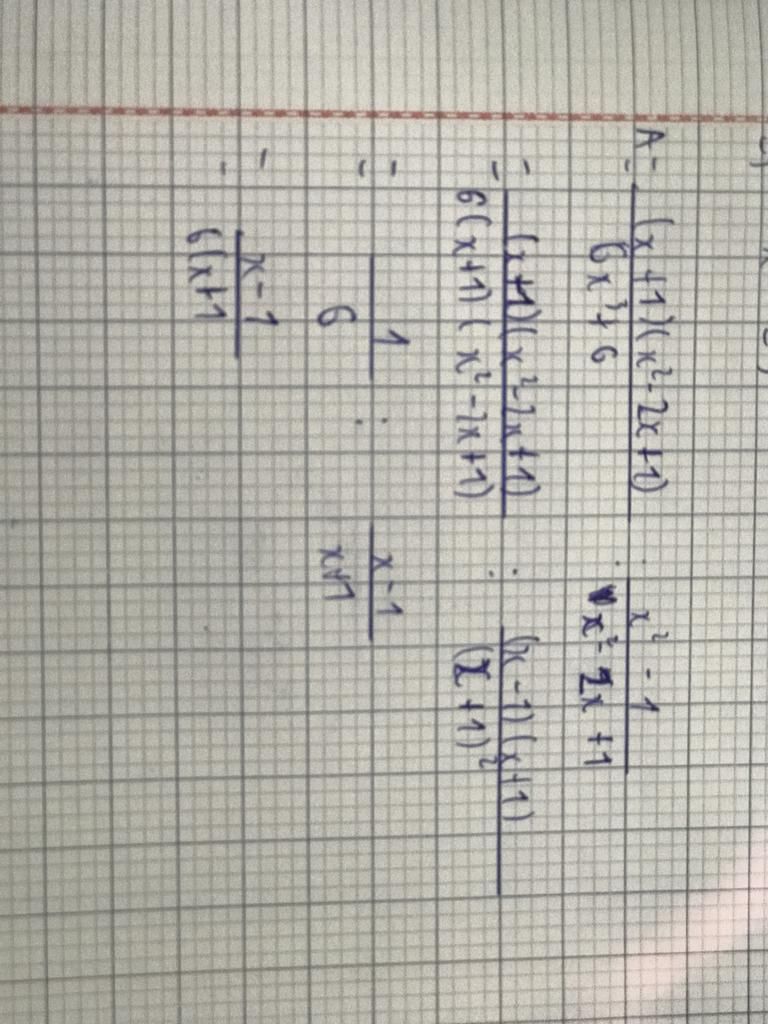 A = \frac{(x+1)(x^2-2x+1)}{6x^3+6} : \frac{x^2-1}{x^2-2x+1}
= \frac{(x+1)(x^2-2x+1)}{6(x+1)(x^2-2x+1)} : \frac{(x-1)(x+1)}{(x+1)^2}
= \frac{1}{6} : \frac{x-1}{x+1}
= \frac{x-1}{6(x+1}